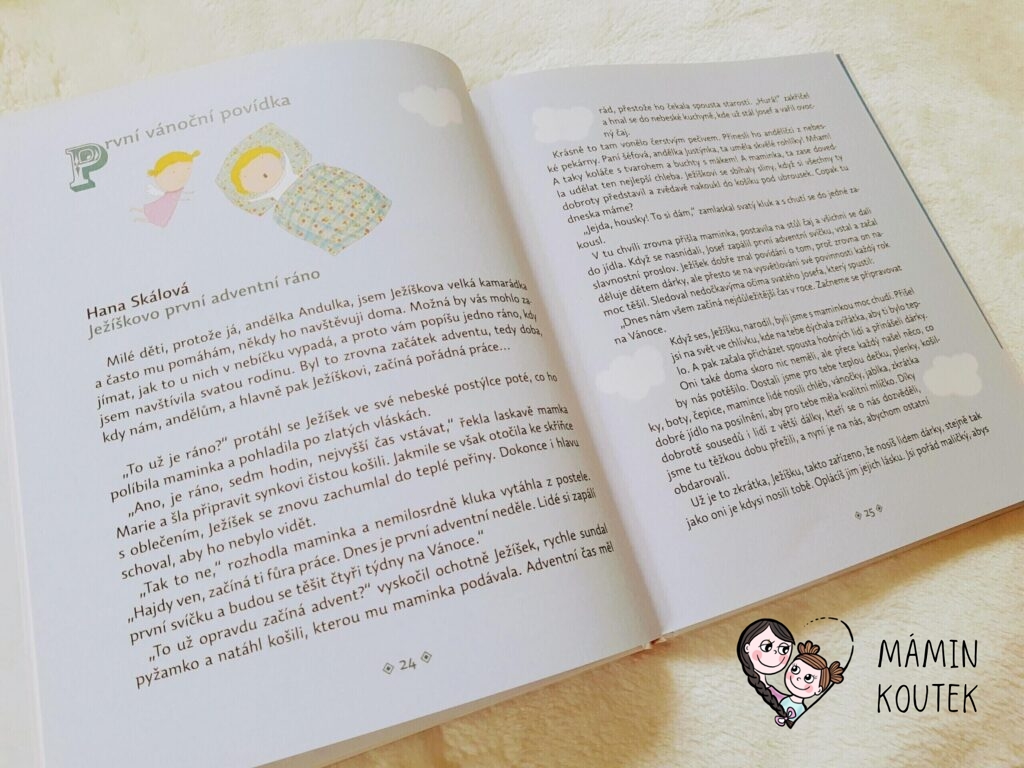 První vánoční povídka
Hana Skálová
Ježíškovo první adventní ráno
Milé děti, protože já, andělka Andulka, jsem Ježíškova velká kamarádka
a často mu pomáhám, někdy ho navštěvuji doma. Možná by vás mohlo za-
jímat, jak to u nich v nebíčku vypadá, a proto vám popíšu jedno ráno, kdy
jsem navštívila svatou rodinu. Byl to zrovna začátek adventu, tedy doba,
kdy nám, andělům, a hlavně pak Ježíškovi, začíná pořádná práce...
„To už je ráno?“ protáhl se Ježíšek ve své nebeské postýlce poté, co ho
políbila maminka a pohladila po zlatých vláskách.
„Ano, je ráno, sedm hodin, nejvyšší čas vstávat,“ řekla laskavě mamka
Marie a šla připravit synkovi čistou košili. Jakmile se však otočila ke skříňce
s oblečením, Ježíšek se znovu zachumlal do teplé peřiny. Dokonce i hlavu
schoval, aby ho nebylo vidět.
„Tak to ne,“ rozhodla maminka a nemilosrdně kluka vytáhla z postele.
„Hajdy ven, začíná ti fůra práce. Dnes je první adventní neděle. Lidé si zapálí
první svíčku a budou se těšit čtyři týdny na Vánoce.“
„To už opravdu začíná advent?“ vyskočil ochotně Ježíšek, rychle sundal
pyžamko a natáhl košili, kterou mu maminka podávala. Adventní čas měl
24
rád, přestože ho čekala spousta starostí. „Hurá!“ zakřičel
a hnal se do nebeské kuchyně, kde už stál Josef a vařil ovoc-
ný čaj.
Krásně to tam vonělo čerstvým pečivem. Přinesli ho andělíčci z nebes-
ké pekárny. Paní šéfová, andělka Justýnka, ta uměla skvělé rohlíky! Mňam!
A taky koláče s tvarohem a buchty s mákem! A maminka, ta zase doved-
la udělat ten nejlepší chleba. Ježíškovi se sbíhaly sliny, když si všechny ty
dobroty představil a zvědavě nakoukl do košíku pod ubrousek. Copak tu
dneska máme?
„Jejda, housky! To si dám,“ zamlaskal svatý kluk a s chutí se do jedné za-
kousl.
V tu chvíli zrovna přišla maminka, postavila na stůl čaj a všichni se dali
do jídla. Když se nasnídali, Josef zapálil první adventní svíčku, vstal a začal
slavnostní proslov. Ježíšek dobře znal povídání o tom, proč zrovna on na-
děluje dětem dárky, ale přesto se na vysvětlování své povinnosti každý rok
moc těšil. Sledoval nedočkavýma očima svatého Josefa, který spustil:
„Dnes nám všem začíná nejdůležitější čas v roce. Začneme se připravovat
na Vánoce.
Když ses, Ježíšku, narodil, byli jsme s maminkou moc chudí. Přišel
jsi na svět ve chlívku, kde na tebe dýchala zvířátka, aby ti bylo tep-
lo. A pak začala přicházet spousta hodných lidí a přinášel dárky.
Oni také doma skoro nic neměli, ale přece každý našel něco, co
by nás potěšilo. Dostali jsme pro tebe teplou dečku, plenky, košil-
ky, boty, čepice, mamince lidé nosili chléb, vánočky, jablka, zkrátka
dobré jídlo na posilnění, aby pro tebe měla kvalitní mlíčko. Díky
dobrotě sousedů i lidí z větší dálky, kteří se o nás dozvěděli,
jsme tu těžkou dobu přežili, a nyní je na nás, abychom ostatní
obdarovali.
Už je to zkrátka, Ježíšku, takto zařízeno, že nosíš lidem dárky, stejně tak
jako oni je kdysi nosili tobě. Oplácíš jim jejich lásku. Jsi pořád maličký, abys
25
MÁMIN
KOUTEK